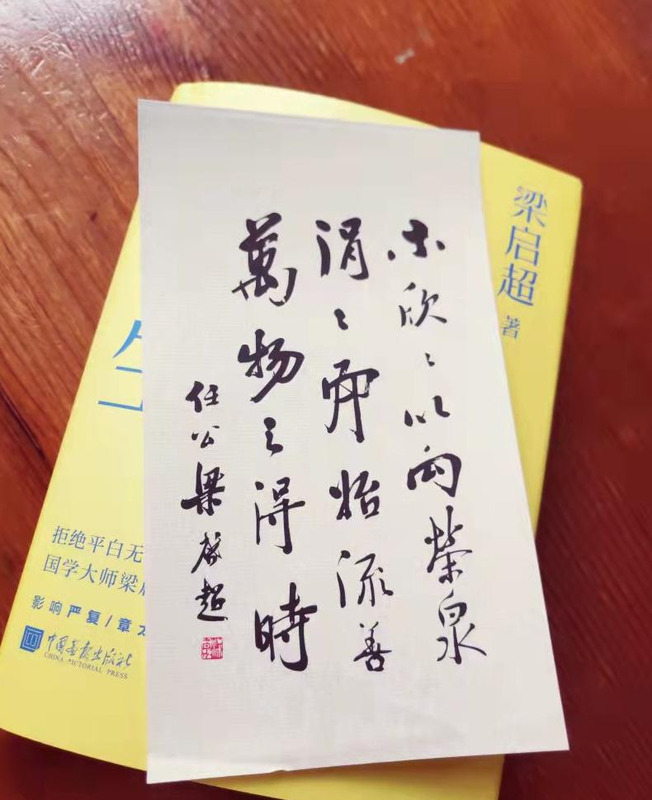 木欣〻以向榮泉
涓〻而始流善
萬物之得時
任公梁啓超
梁启超 著
拒绝平白无
国学大师梁
影响严复/章太
中国画报出版社
CHINA PICTORIAL PRESS